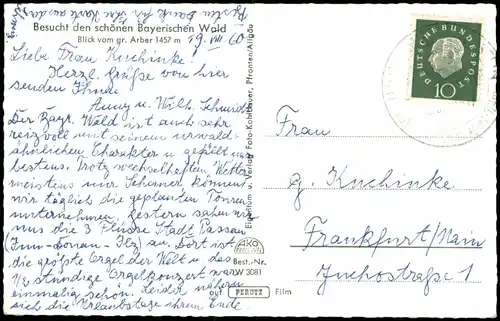 Besten Dank für Ihre Karte aus
Besucht den schönen Bayerischen Wald
Blick vom gr. Arber 1457 m
19. VIII 60
Liebe Frau Kuchinke!
Herzl. Grüße von hier
senden Ihnen
Anny u. Wilh.
Der Bayr. Wald ist auch sehr
reizvoll mit seinem urwald-
ähnlichen Charakter u. gefällt uns
bestens. Trotz wechselhaftem Wetter
meistens nur Schauer, können
wir täglich die geplanten Touren
unternehmen. Gestern sahen wir
uns die 3 Flüsse Stadt Passau
(Inn-Donau-Ilz) an. Dort ist
die größte Orgel der Welt u. das
1/2 stündige Orgelkonzert war
einmalig schön. Leider nähern
sich die Urlaubstage ihrem Ende
Eigentum u. Verlag Foto-Kohlbauer, Pfronten/Allgäu
AKO
Best.-Nr.
W/BW 3081
auf PERUTZ Film
DEUTSCHE BUNDESPOST
10
Frau
G. Kuchinke
Frankfurt/Main
Juchostraße 1